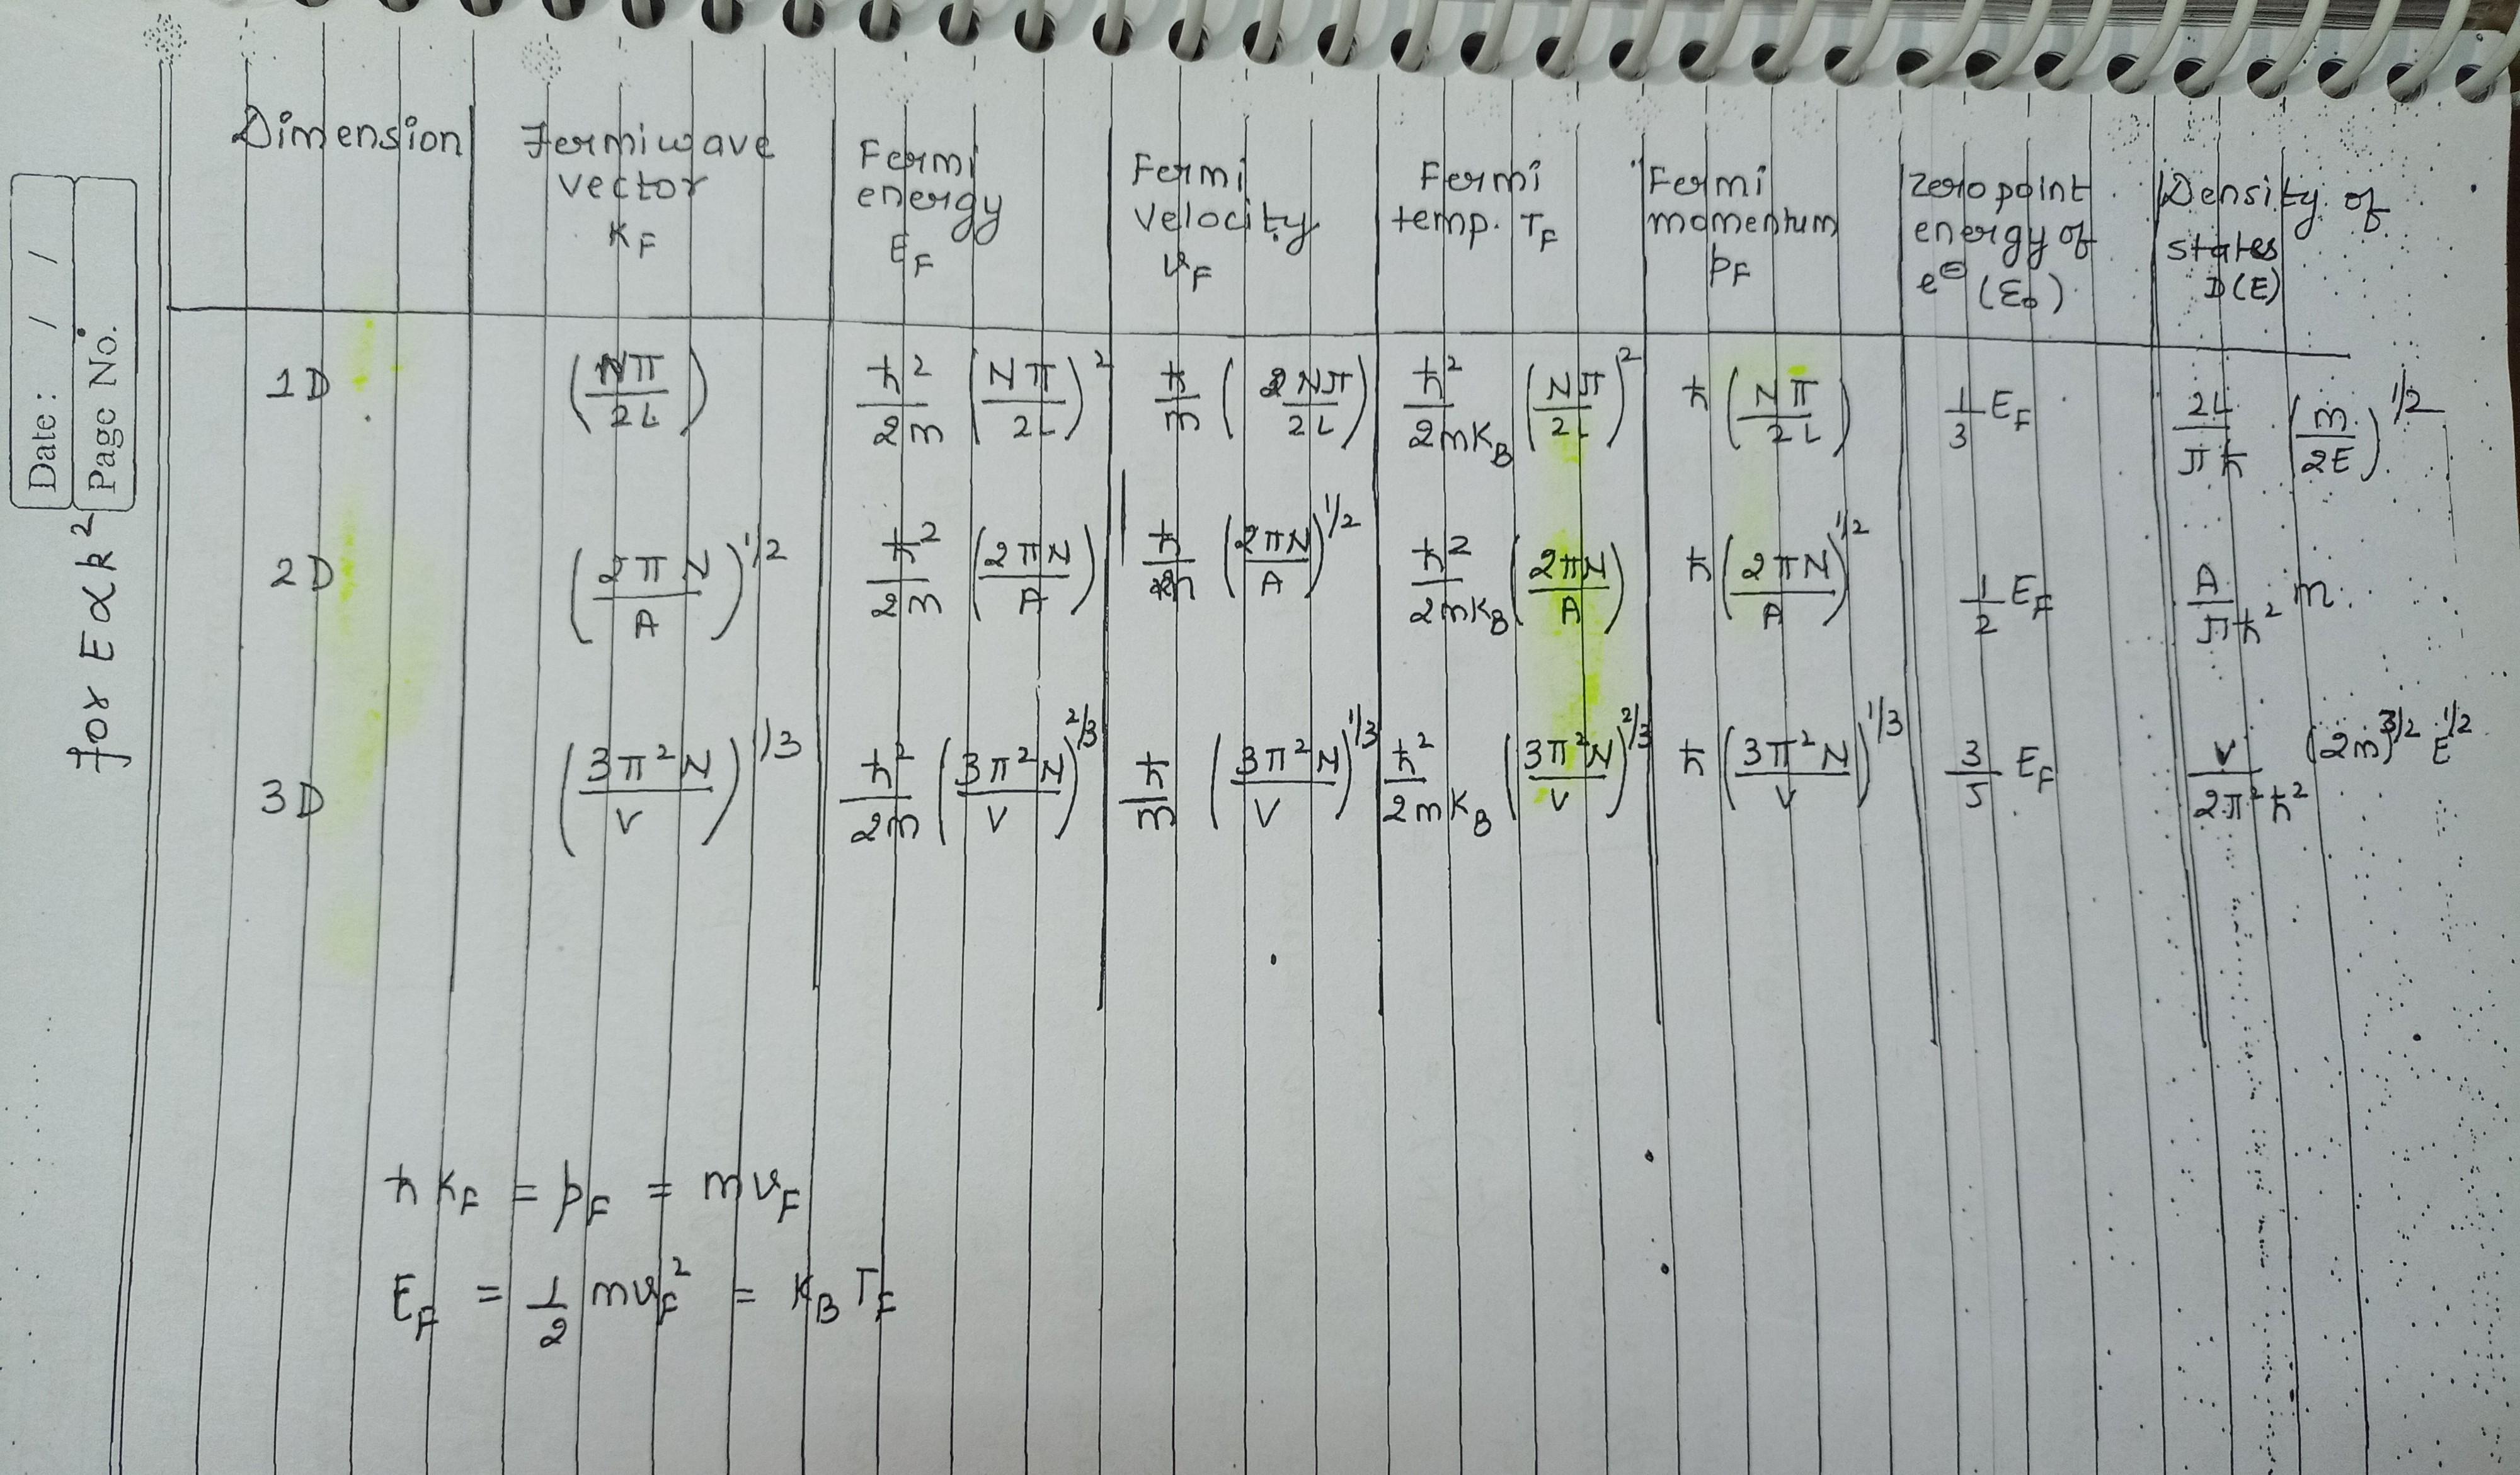 Date: / /
Page No.
for E α k²
Dimension | Fermi wave vector K_F | Fermi energy E_F | Fermi velocity v_F | Fermi temp. T_F | Fermi momentum p_F | Zero point energy of e⊖ (E₀) | Density of states D(E)
1D | (Nπ/2L) | ħ²/2m (Nπ/2L)² | ħ/m (2Nπ/2L) | ħ²/2mK_B (Nπ/2L)² | ħ (Nπ/2L) | 1/3 E_F | 2L/πħ (m/2E)^1/2
2D | (2πN/A)^1/2 | ħ²/2m (2πN/A) | ħ/m (2πN/A)^1/2 | ħ²/2mK_B (2πN/A) | ħ (2πN/A)^1/2 | 1/2 E_F | A/πħ² m
3D | (3π²N/V)^1/3 | ħ²/2m (3π²N/V)^2/3 | ħ/m (3π²N/V)^1/3 | ħ²/2mK_B (3π²N/V)^2/3 | ħ (3π²N/V)^1/3 | 3/5 E_F | V/2π²ħ² (2m)^3/2 E^1/2
ħ K_F = p_F = m v_F
E_F = 1/2 m v_F² = K_B T_F